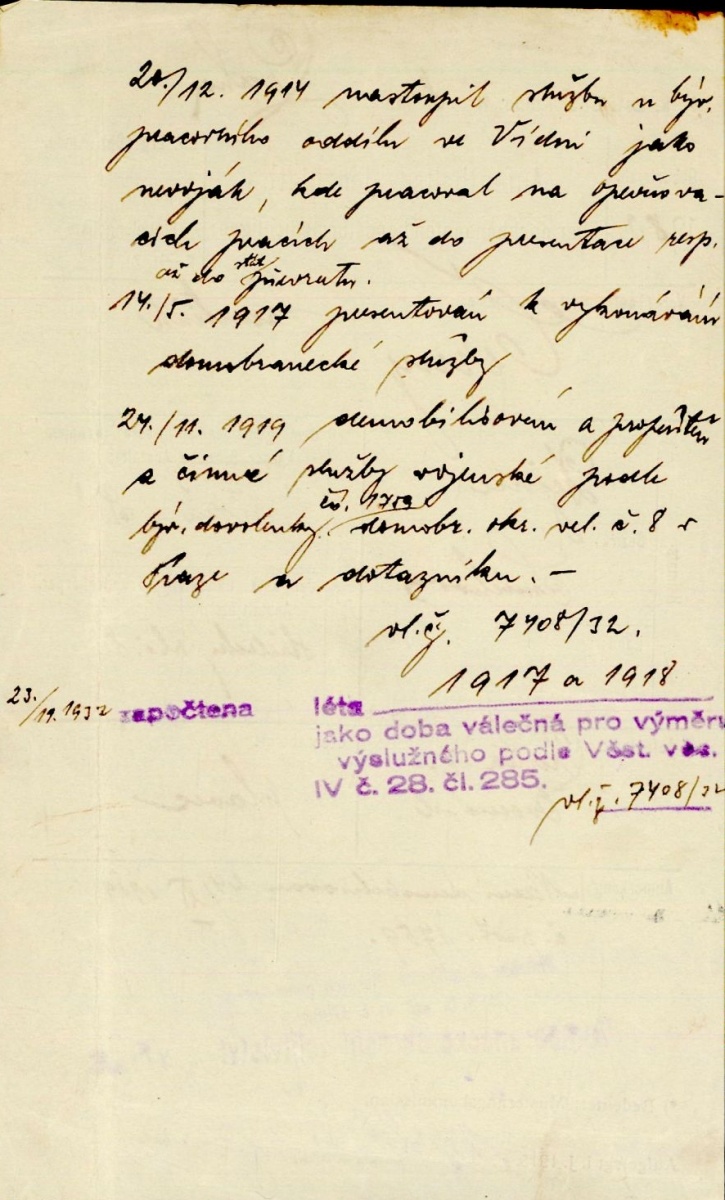 20./12. 1914 nastoupil službu u býv.
pracovního oddílu ve Vídni jako
nevoják, kde pracoval na opevňova-
cích pracích až do presentace resp.
až do stát. převratu.
14./5. 1917 presentován k vykonávání
domobranecké služby
24./11. 1919 demobilisován a propuštěn
z činné služby vojenské podle
býv. dovolenky čís. 1759 domobr. okr. vel. č. 8 v
Praze a dotazníku. —
vl. čj. 7408/32.
1917 a 1918
23./11. 1932 započtena léta
jako doba válečná pro výměru
výslužného podle Věst. věc.
IV č. 28. čl. 285.
vl. čj. 7408/32